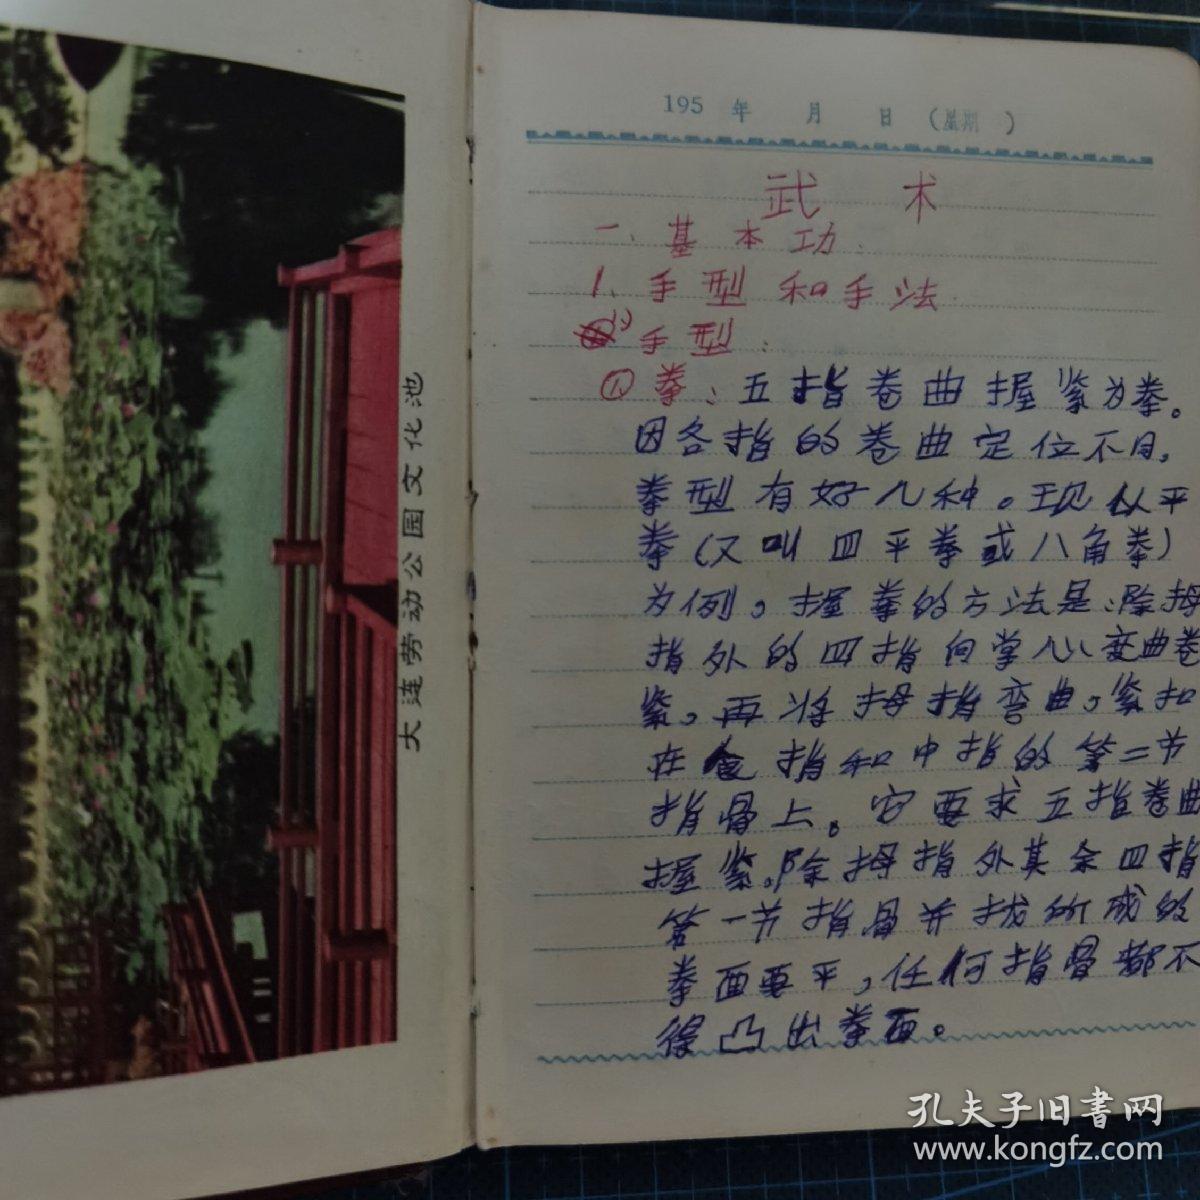 大连劳动公园文化池
195 年 月 日 (星期 )
武 术
一、基本功:
1、手型和手法
(1)手型:
①拳:五指卷曲握紧为拳。
因各指的卷曲定位不同,
拳型有好几种。现以平
拳(又叫四平拳或八角拳)
为例。握拳的方法是:除拇
指外的四指向掌心变曲卷
紧,再将拇指弯曲,紧扣
在食指和中指的第二节
指骨上。它要求五指卷曲
握紧。除拇指外其余四指
第一节指骨并拢所成的
拳面要平,任何指骨都不
得凸出拳面。
孔夫子旧书网
www.kongfz.com